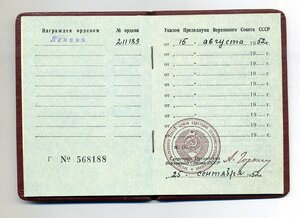 Награжден орденом
№ ордена
Ленина
211183
Г № 568188
Указом Президиума Верховного Совета СССР
от 15 августа 1952 г.
от „ “ 19 г.
от „ “ 19 г.
от „ “ 19 г.
от „ “ 19 г.
от „ “ 19 г.
от „ “ 19 г.
от „ “ 19 г.
Секретарь Президиума
Верховного Совета СССР
А. Горкин
25 сентября 1952 г.